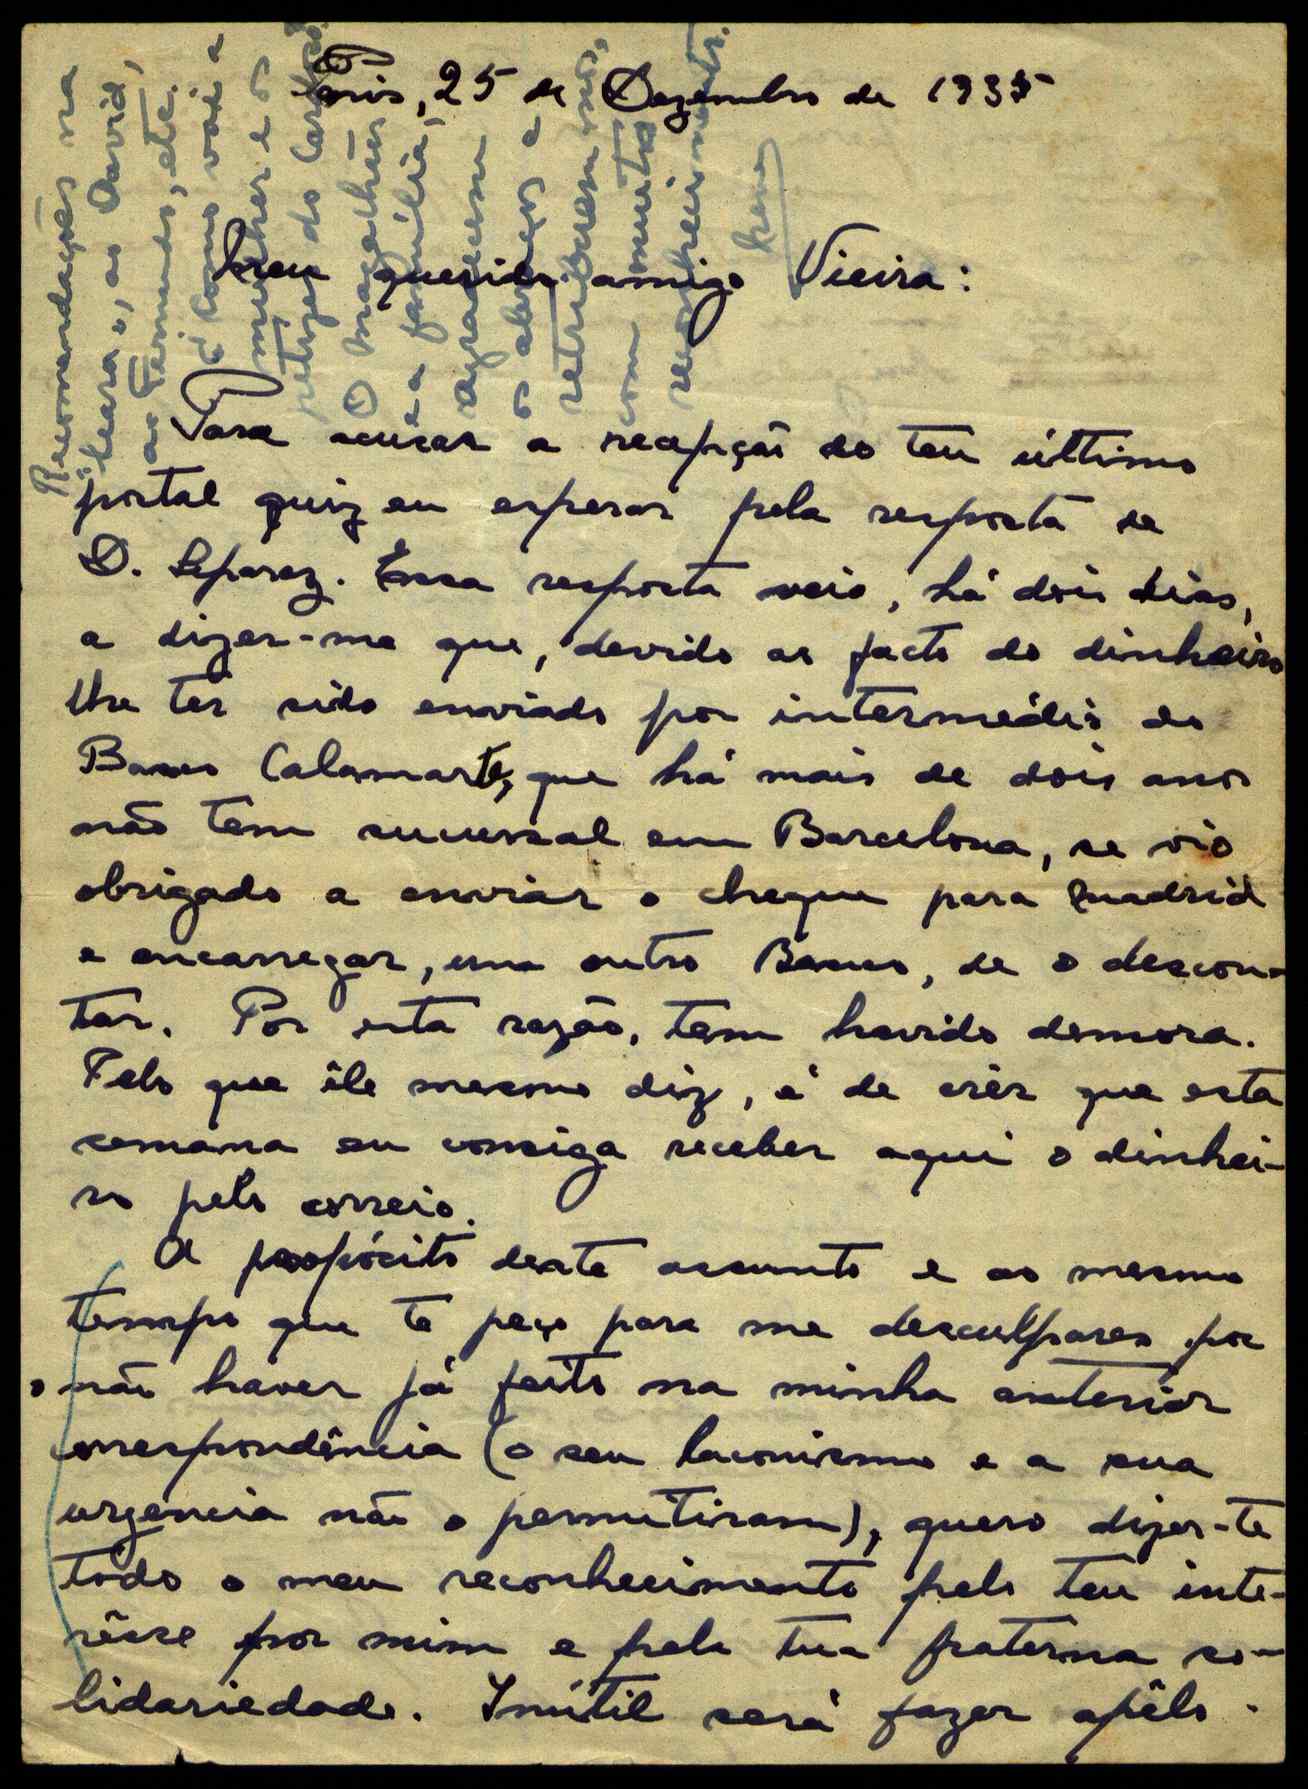 Paris, 25 de Dezembro de 1935
Meu querido amigo Vieira:
Para acusar a recepção do teu último
postal quiz eu esperar pela resposta de
D. Separez. Essa resposta veio, há dois dias,
a dizer-me que, devido ao facto do dinheiro
lhe ter sido enviado por intermédio do
Banco Calamarte, que há mais de dois anos
não tem sucursal em Barcelona, se vio
obrigado a enviar o cheque para Madrid
e encarregar, um outro Banco, de o descon-
tar. Por esta razão, tem havido demora.
Pelo que êle mesmo diz, é de crêr que esta
semana eu consiga receber aqui o dinhei-
ro pelo correio.
A propósito deste assunto e ao mesmo
tempo que te peço para me desculpares por
o não haver já feito na minha anterior
correspondência (o seu laconismo e a sua
urgencia não o permitiram), quero dizer-te
todo o meu reconhecimento pelo teu inte-
rêsse por mim e pela tua fraterna so-
lidariedade. Inútil será fazer apêlo
Recomendações na
ao David,
ao Fernando, etc.
E como vai a
mulher e os
petizes do
O Magalhães
e a família,
agradecem
os abraços e
retribuem-nos,
com muito
reconhecimento.